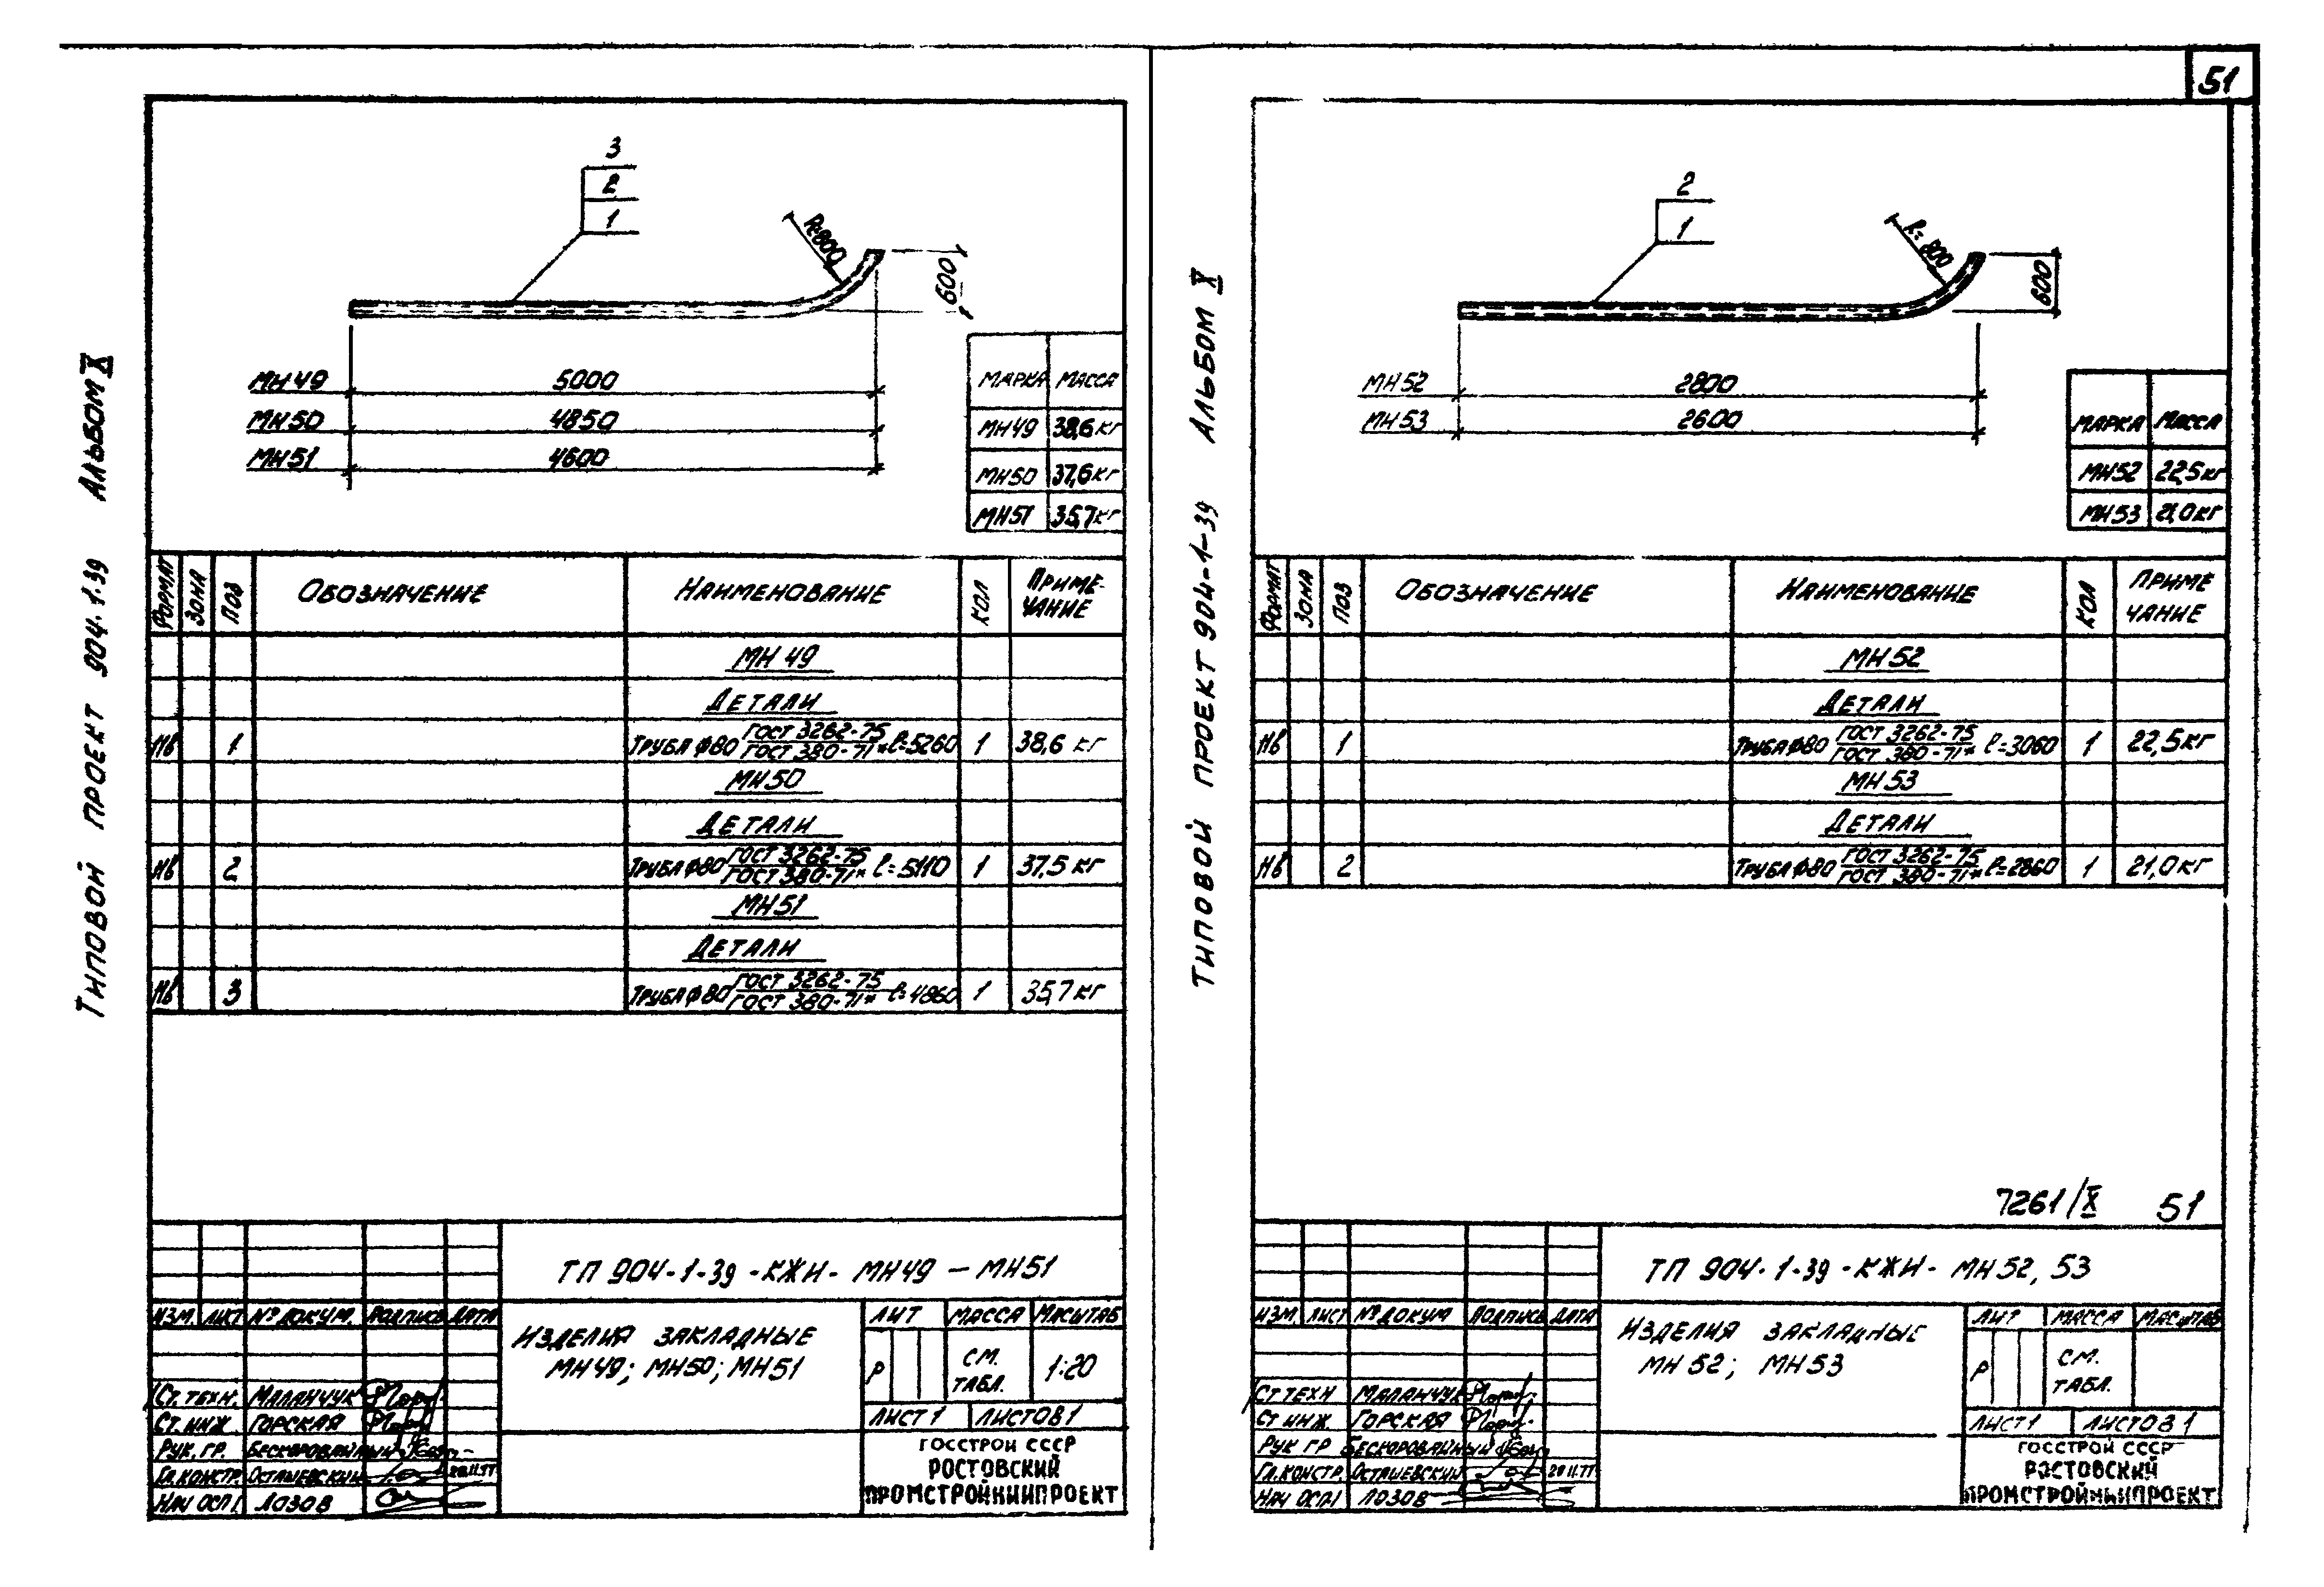 51
Типовой проект 904-1-39 Альбом X
3
2
1
R=800
600
МН49 5000
МН50 4850
МН51 4600
Марка Масса
МН49 38,6 кг
МН50 37,6 кг
МН51 35,7 кг
Формат Зона Поз Обозначение Наименование Кол Приме-
чание
МН 49
Детали
1 Труба ф80 ГОСТ 3262-75 / ГОСТ 380-71* ℓ=5260 1 38,6 кг
МН50
Детали
2 Труба ф80 ГОСТ 3262-75 / ГОСТ 380-71* ℓ=5110 1 37,5 кг
МН51
Детали
3 Труба ф80 ГОСТ 3262-75 / ГОСТ 380-71* ℓ=4860 1 35,7 кг
ТП 904-1-39 -КЖИ- МН49 — МН51
Изм. Лист № докум. Подпись Дата
Изделия закладные
МН49; МН50; МН51
Лит Масса Масштаб
Р См. табл. 1:20
Лист 1 Листов 1
Ст. техн. Маланчук
Ст. инж. Горская
Рук. гр. Бескоровайный
Гл. констр. Осташевский 20.11.77
Нач ОСП1 Лозов
Госстрой СССР
Ростовский
Промстройниипроект
Типовой проект 904-1-39 Альбом X
2
1
R=800
600
МН52 2800
МН53 2600
Марка Масса
МН52 22,5 кг
МН53 21,0 кг
Формат Зона Поз Обозначение Наименование Кол Приме
чание
МН52
Детали
1 Труба ф80 ГОСТ 3262-75 / ГОСТ 380-71* ℓ=3060 1 22,5 кг
МН 53
Детали
2 Труба ф80 ГОСТ 3262-75 / ГОСТ 380-71* ℓ=2860 1 21,0 кг
7261/X 51
ТП 904-1-39 -КЖИ- МН52, 53
Изм Лист № докум Подпись Дата
Изделия закладные
МН 52; МН 53
Лит Масса Масштаб
Р См. табл.
Лист 1 Листов 1
Ст техн Маланчук
Ст инж. Горская
Рук гр Бескоровайный
Гл. констр. Осташевский 20.11.77
Нач ОСП1 Лозов
Госстрой СССР
Ростовский
Промстройниипроект